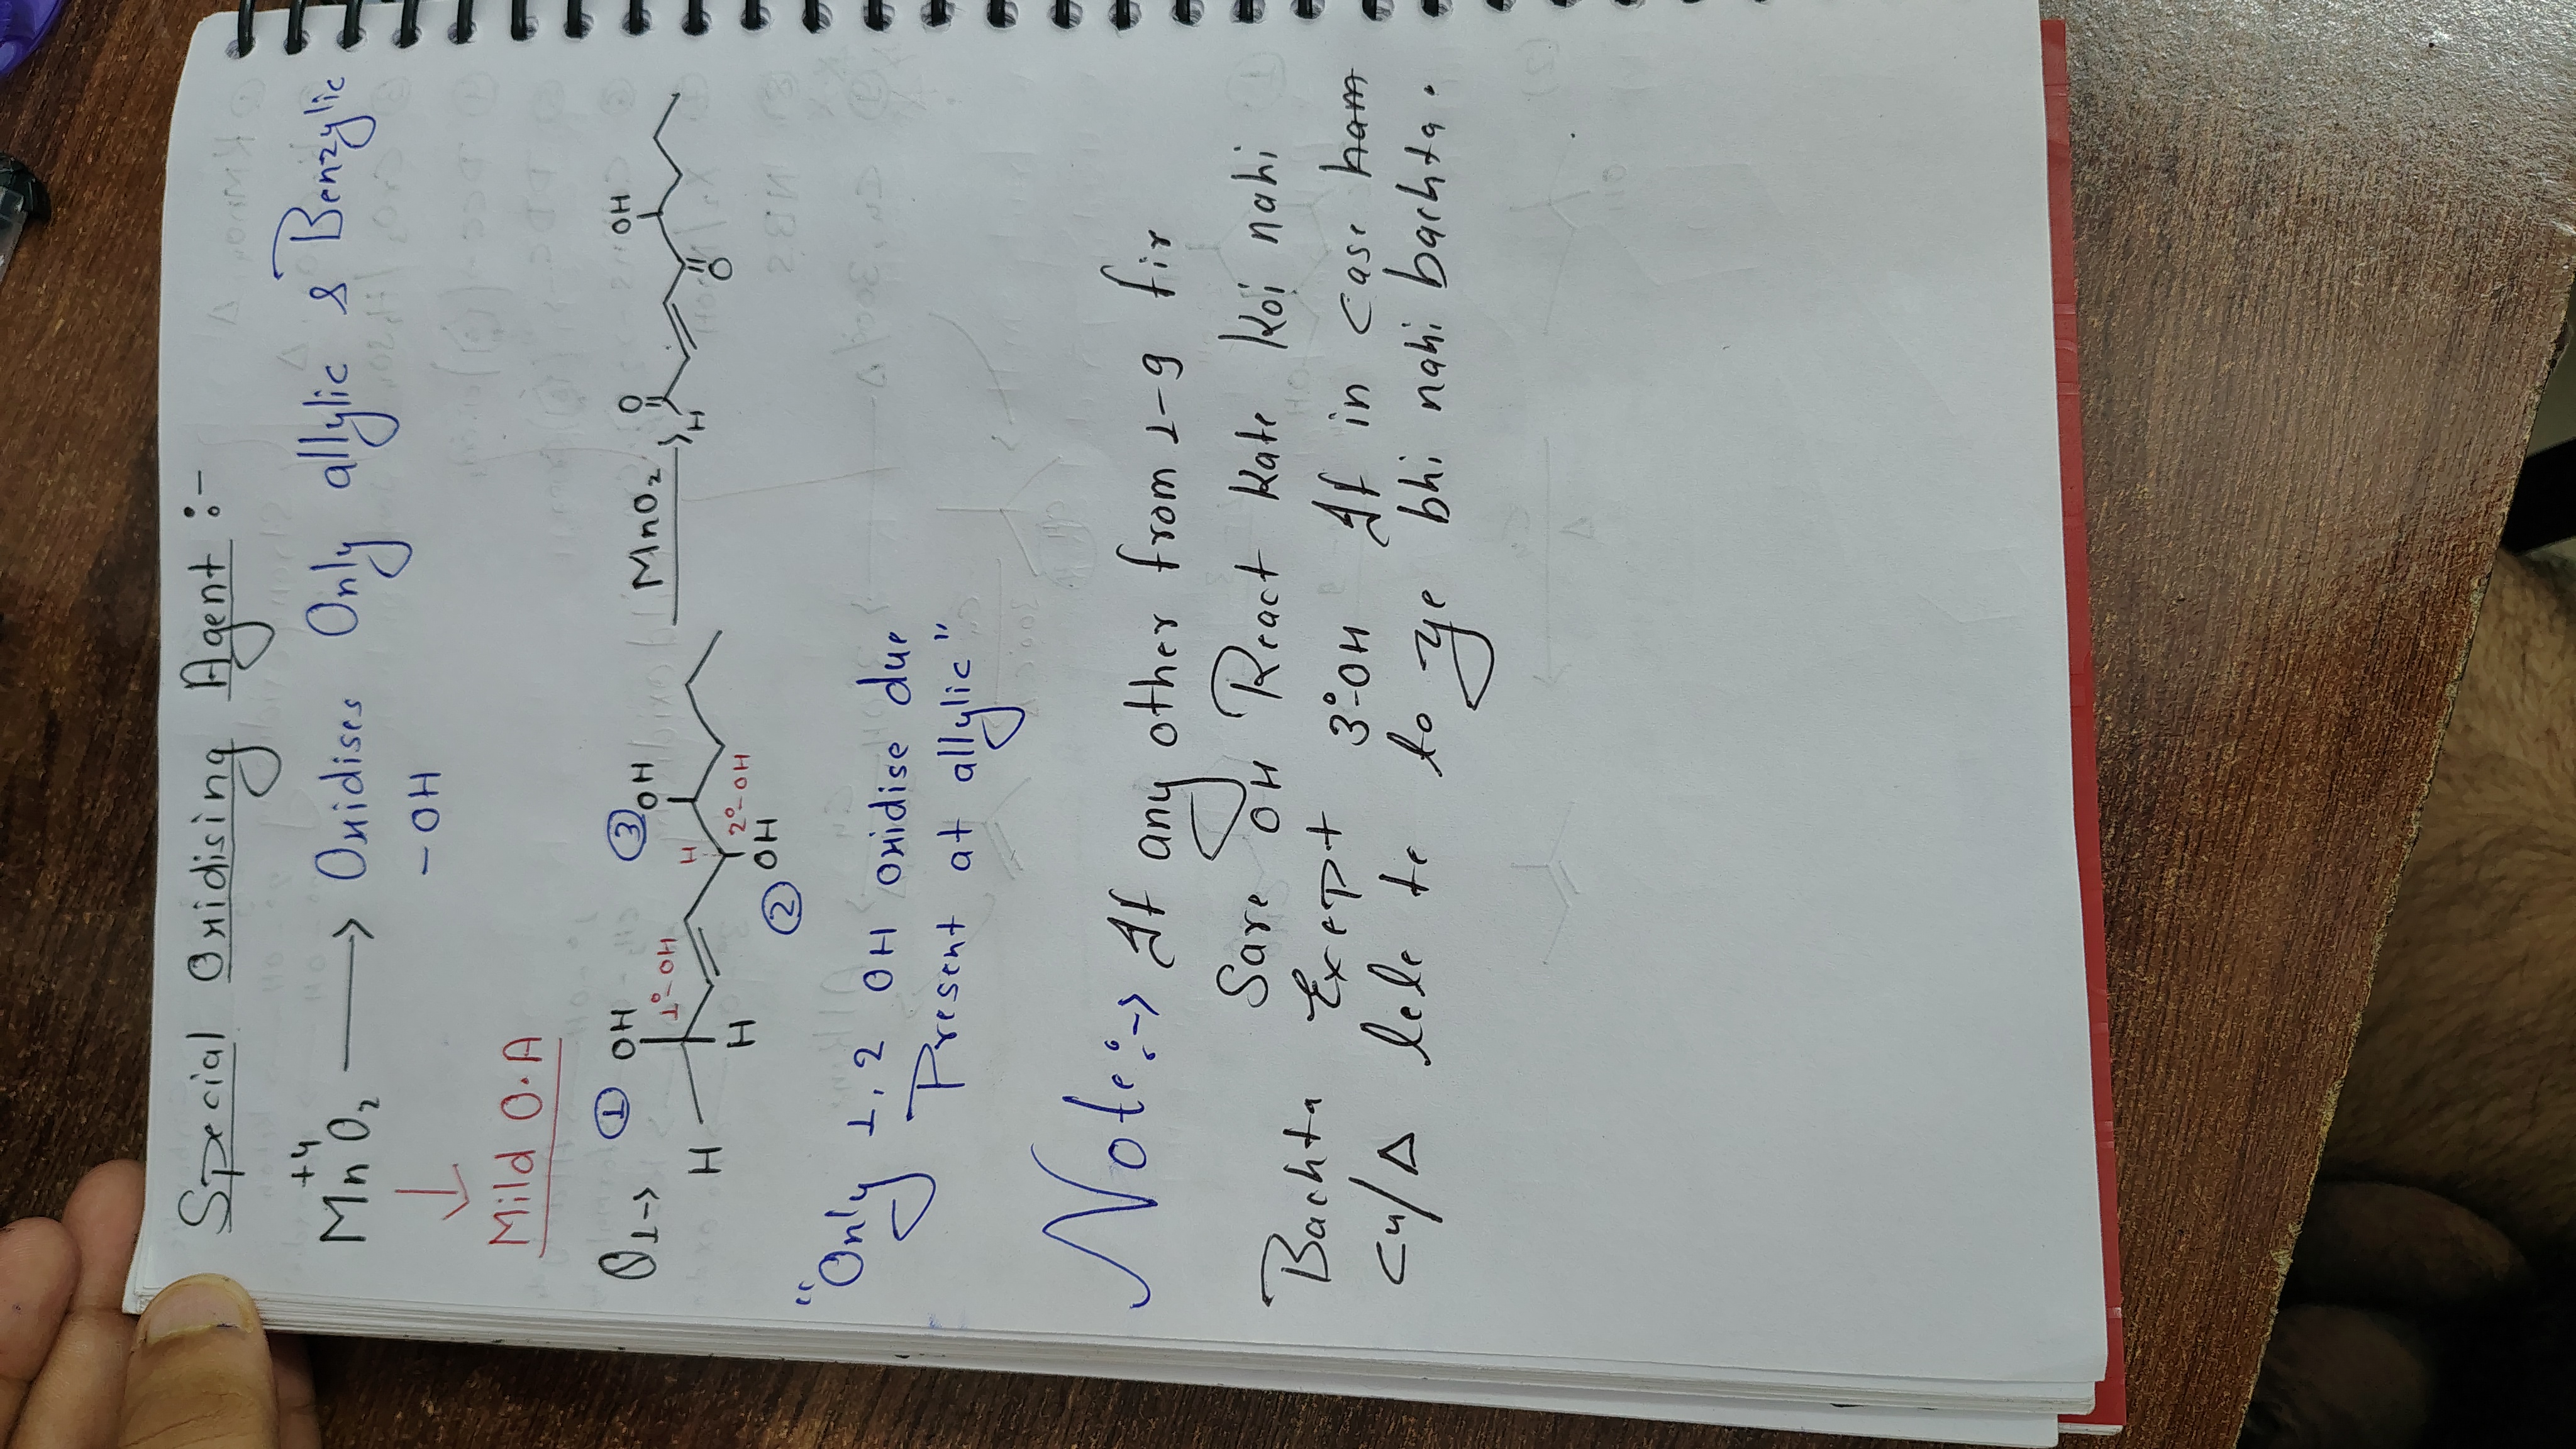 Special Oxidising Agent :-
+4
MnO2 ⟶ Oxidises Only allylic & Benzylic
-OH
↓
Mild O.A
Q1→ ① OH 1°-OH H H ② OH 2°-OH H ③ OH MnO2 → O H O OH
"Only 1,2 OH oxidise due
Present at allylic"
Note:-> If any other from 1-9 fir
Sare OH React kate koi nahi
Bachta Exept 3°-OH If in case ham
Cu/Δ lele te to ye bhi nahi bachta.